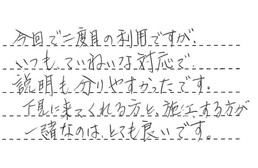 今回で二度目の利用ですが、
いつもていねいな対応で
説明も分りやすかったです。
下見に来てくれる方と、施工する方が
一諸なのは、とても良いです。